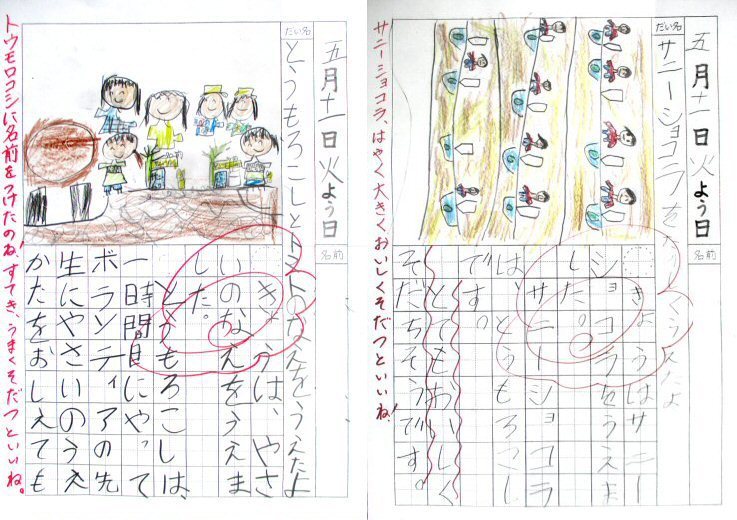 五月十一日火よう日
だい名
サニーショコラを くうえたよ
名前
きょうはサニー
ショコラをうえま
した。
サニーショコラ
は、とうもろこし
です。
とてもおいしく
そだちそうです。
サニーショコラ、はやく大きくおいしくそだつといいね!
五月十一日火よう日
だい名
とうもろこしとトマトのなえをうえたよ
名前
きょうは、やさ
いのなえをうえま
した。
とうもろこしは、
一時間目にやって
ボランティアの先
生にやさいのうえ
かたをおしえても
トウモロコシに名前をつけたのね!すてき。うまくそだつといいね。